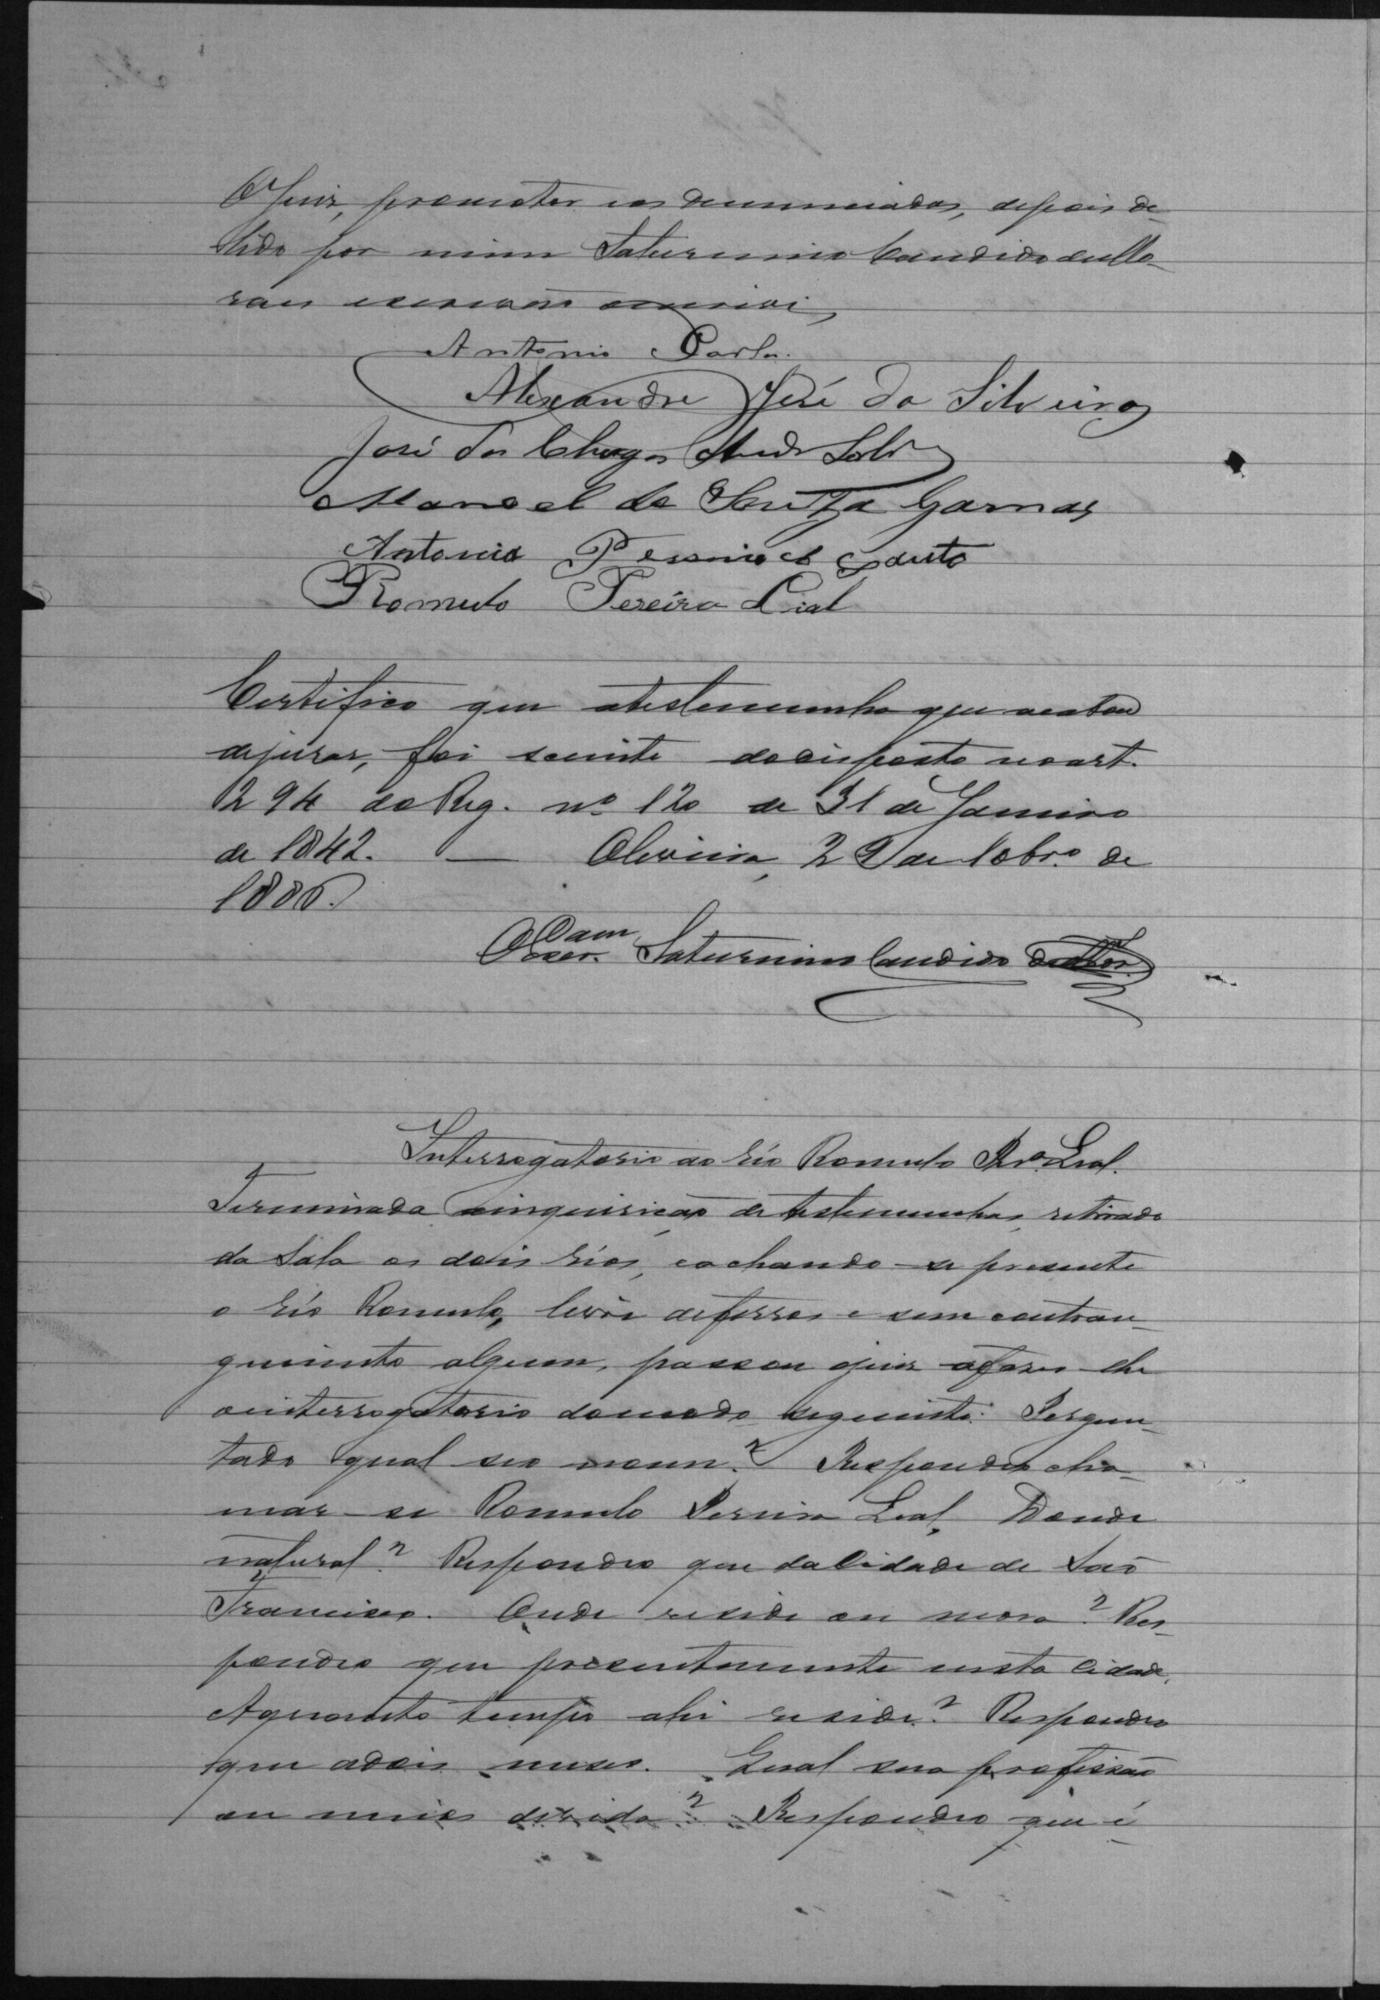 O Juiz, promotor e os denunciados, depois de
lido por mim Saturnino Candido de Mo-
raes escrivão escrivi,
Antonio
Alexandre José da Silveira
José das Chagas Andr
Manoel de Souza Garnas
Antonio Couto
Romulo Pereira Lial
Certifico que atestemunha que acabou
dejurar, foi sciente do disposto no art.
294 do Reg. nº 120 de 31 de Janeiro
de 1842. — Oliveira, 29 de 10brº de
1886.
O Escr. Saturnino Candido de Mor.
Interrogatorio ao réo Romulo Prª Leal.
Terminada ainquirição de testemunhas, retirado
da Sala os dois réos, eachando-se presente
o réo Romulo, livre deferros e sem constran-
gimento algum, passou ojuiz afazer-lhe
ointerrogatorio domodo seguinte: Pergun-
tado qual seo nome? Respondeo cha-
mar-se Romulo Pereira Leal. Donde
natural? Respondeo que daCidade de São
Francisco. Onde reside ou mora? Res-
pondeo que presentemente nesta Cidade.
Aquanto tempo ahi reside? Respondeo
que adois meses. Qual sua profissão
ou meios devida? Respondeo que é